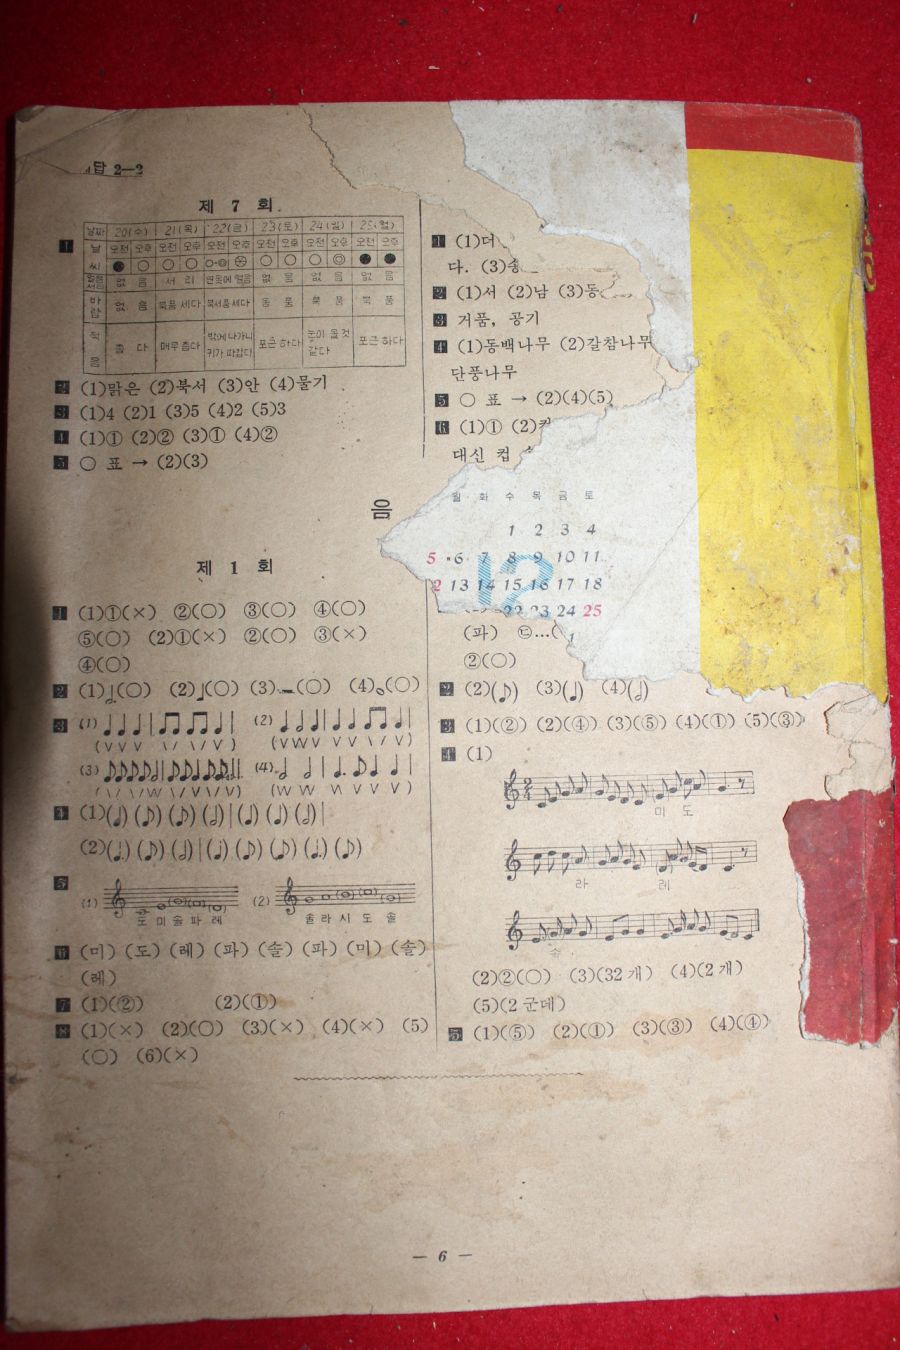 답 2—2
제 7 회
날짜 20(수) 21(목) 22(금) 23(토) 24(일) 25(월)
날씨 오전 오후 오전 오후 오전 오후 오전 오후 오전 오후 오전 오후
없음 서리 없음 없음 없음
바람 없음 북풍 세다 북서풍 세다 동풍 북풍 북풍
춥다 매우 춥다 밖에 나가니 귀가 따갑다 포근하다 눈이 올 것 같다 포근하다
1
2 (1)맑은 (2)북서 (3)안 (4)물기
3 (1)4 (2)1 (3)5 (4)2 (5)3
4 (1)① (2)② (3)① (4)②
5 ○ 표 → (2)(3)
1 (1)더
다. (3)
2 (1)서 (2)남 (3)동
3 거품, 공기
4 (1)동백나무 (2)갈참나무
단풍나무
5 ○ 표 → (2)(4)(5)
6 (1)① (2)
대신 컵
음
월 화 수 목 금 토
1 2 3 4
5 6 7 8 9 10 11
2 13 14 15 16 17 18
22 23 24 25
1
12
제 1 회
1 (1)①(×) ②(○) ③(○) ④(○)
⑤(○) (2)①(×) ②(○) ③(×)
④(○)
2 (1)(○) (2)(○) (3)(○) (4)(○)
3 (1) (2)
(∨ ∨ ∨ \ / \ / ∨) (∨ W ∨ ∨ ∨ \ / ∨)
(3) (4)
4 (1)(♩) (♪) (♪) (♩) | (♩) (♩) (𝅗𝅥) |
(2)(♩.) (♪) (𝅗𝅥) | (♩) (♪) (♪) (♩.) (♪)
5
(1) (2)
도 미 솔 파 레 솔 라 시 도 솔
6 (미) (도) (레) (파) (솔) (파) (미) (솔)
(레)
7 (1)(②) (2)(①)
8 (1)(×) (2)(○) (3)(×) (4)(×) (5)
(○) (6)(×)
(파) ㉢…(
②(○)
2 (2)(♪) (3)(♩) (4)(𝅗𝅥)
3 (1)(②) (2)(④) (3)(⑤) (4)(①) (5)(③)
4 (1)
2/4
미 도
라 레
솔
(2)②(○) (3)(32 개) (4)(2 개)
(5)(2 군데)
5 (1)(⑤) (2)(①) (3)(③) (4)(④)
— 6 —